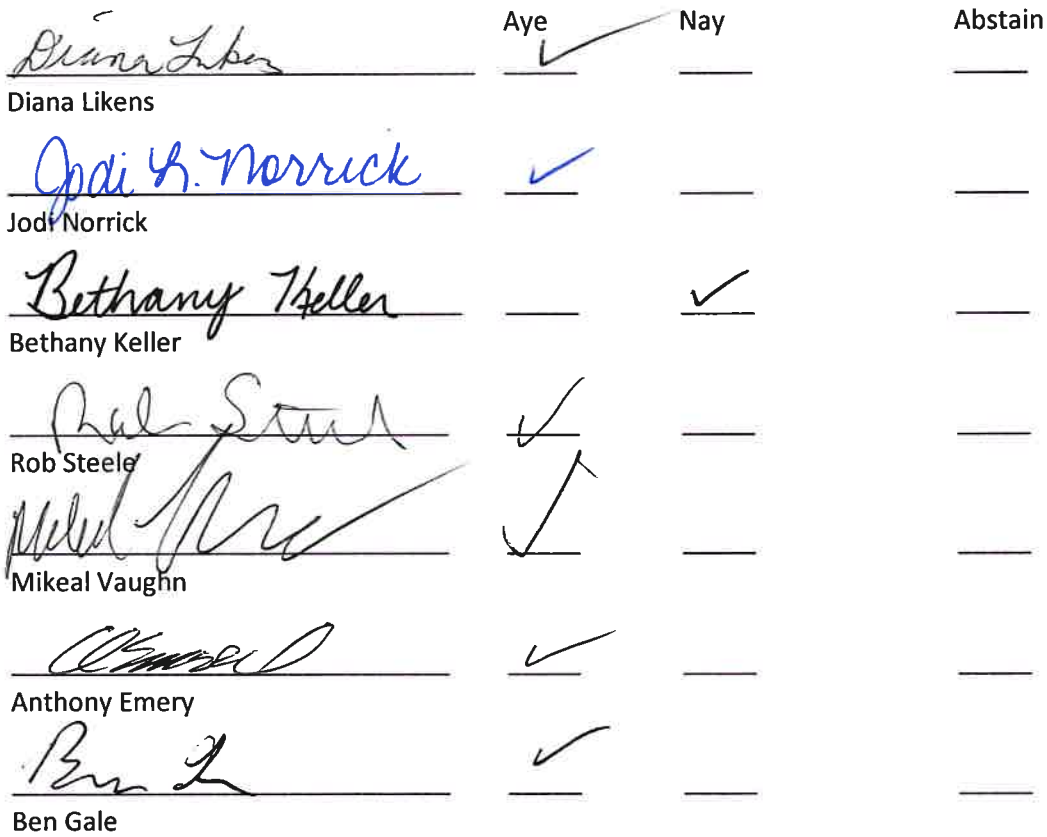 Aye Nay Abstain
Diana Likens
Diana Likens
Jodi L. Norrick
Jodi Norrick
Bethany Keller
Bethany Keller
Rob Steele
Rob Steele
Mikeal Vaughn
Anthony Emery
Ben
Ben Gale